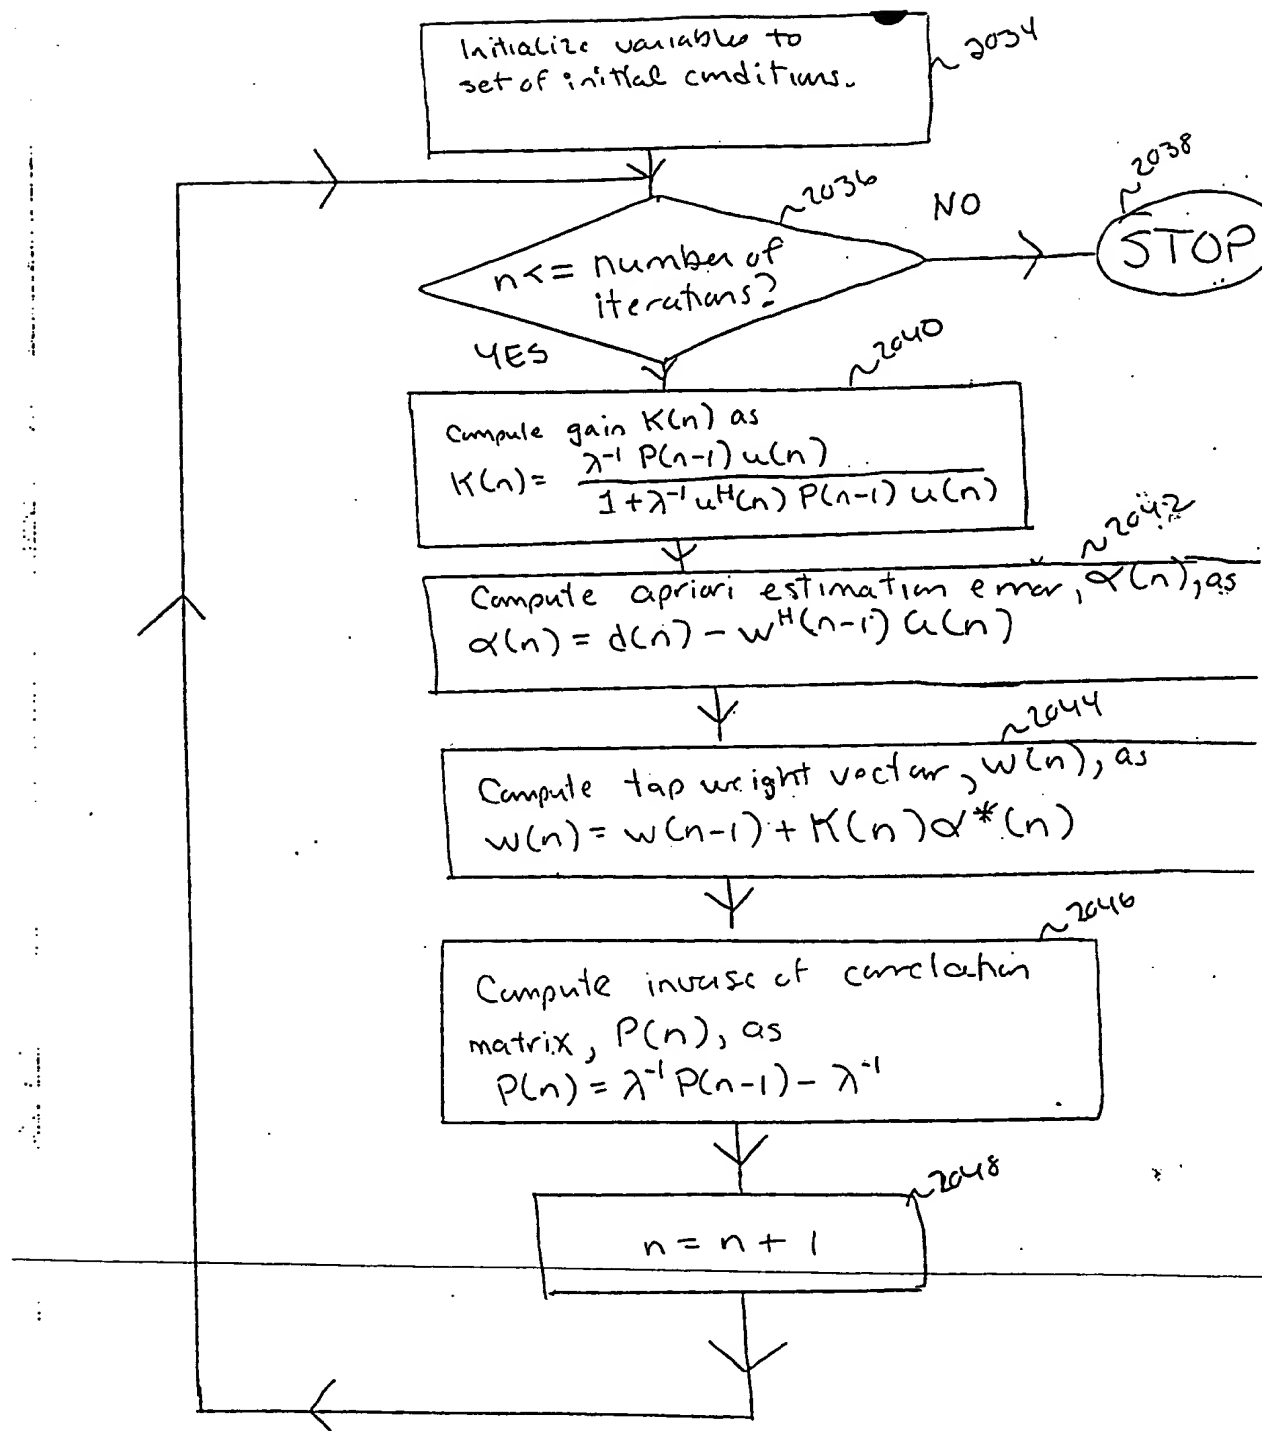 Initialize variables to
set of initial conditions.
2034
2036
n<= number of
iterations?
NO
2038
STOP
YES
2040
Compute gain K(n) as
K(n)= λ⁻¹ P(n-1) u(n)
1+λ⁻¹ uᴴ(n) P(n-1) u(n)
2042
Compute apriori estimation error, α(n), as
α(n) = d(n) - wᴴ(n-1) u(n)
2044
Compute tap weight vector, w(n), as
w(n) = w(n-1) + K(n)α*(n)
2046
Compute inverse of correlation
matrix, P(n), as
P(n) = λ⁻¹ P(n-1) - λ⁻¹
2048
n = n + 1